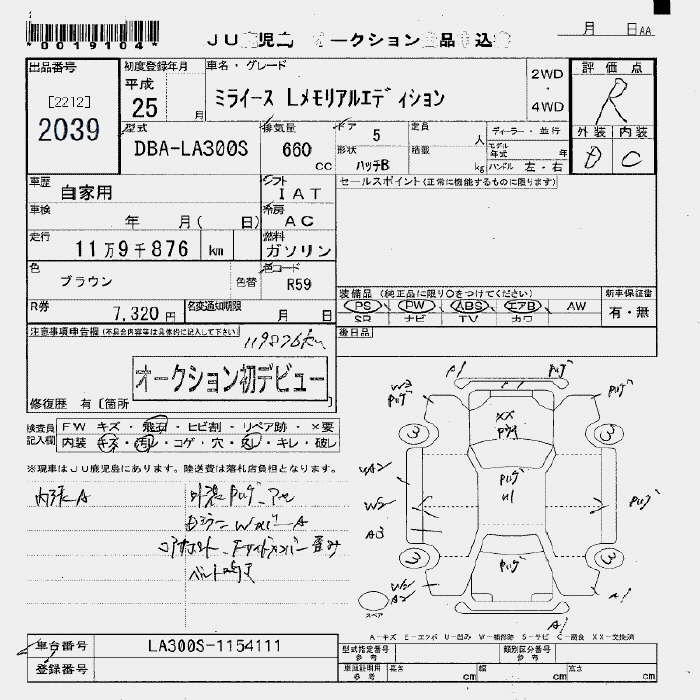 *0019104*
月 日AA
出品番号
[2212]
2039
初度登録年月
平成
25 月
車名・グレード
ミライース Lメモリアルエディション
2WD
・
4WD
評価点
R
外装 内装
D C
型式
DBA-LA300S
排気量
660 cc
ドア 5
形状 ハッチB
定員 人
積載 kg
ディーラー・並行
モデル年式 年
ハンドル 左・右
車歴 自家用
シフト IAT
セールスポイント(正常に機能するものに限ります)
車検 年 月( 日)
冷房 AC
走行 11万9千876 km
燃料 ガソリン
色 ブラウン 色替
色コード R59
装備品 (純正品に限り○をつけてください)
PS PW ABS エアB AW
SR ナビ TV カワ
新車保証書
有・無
R券 7,320円
名変通知期限 月 日
後日品
注意事項申告欄(不具合内容等は具体的に記入して下さい)
119876km
オークション初デビュー
修復歴 有〔箇所
検査員記入欄
FW キズ・飛石・ヒビ割・リペア跡・×要
内装・キズ・汚れ・コゲ・穴・スレ・キレ・破レ
※現車はJU鹿児島にあります。陸送費は落札店負担となります。
A1
W2
3 3
XX
UA2
W2
A3
3 3
A2
A1
A1
スペア
A-キズ E-エクボ U-凹み W-補修跡 S-サビ C-腐食 XX-交換済
車台番号 LA300S-1154111
登録番号
型式指定番号 参考
類別区分番号 参考
車庫証明用 参考 長さ cm 幅 cm 高さ cm